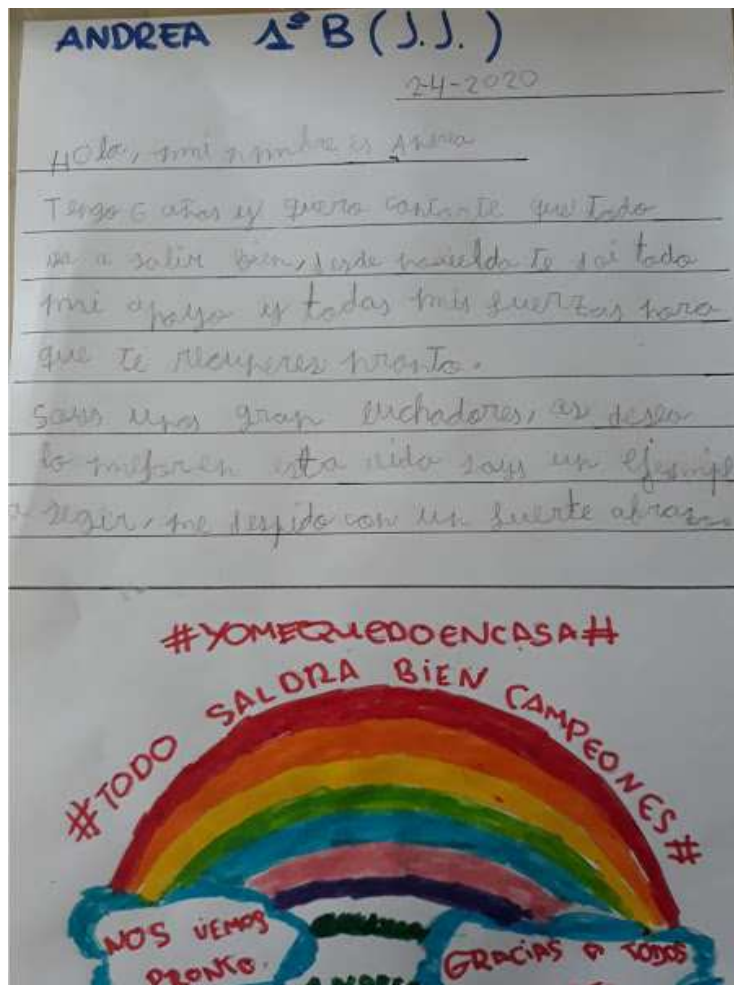 ANDREA 1º B (J.J.)
2-4-2020
Hola, mi nombre es Andrea
Tengo 6 años y quero contarte que todo
va a salir bien, desde te doi todo
mi apoyo y todas mis fuerzas para
que te recuperes pronto.
Soys unos gran luchadores, os deseo
lo mejor en esta vida soys un ejemplo
a segir, me despido con un fuerte abrazo
#YOMEQUEDOENCASA#
#TODO SALDRA BIEN CAMPEONES#
NOS VEMOS
PRONTO.
GRACIAS A TODOS
ANDREA